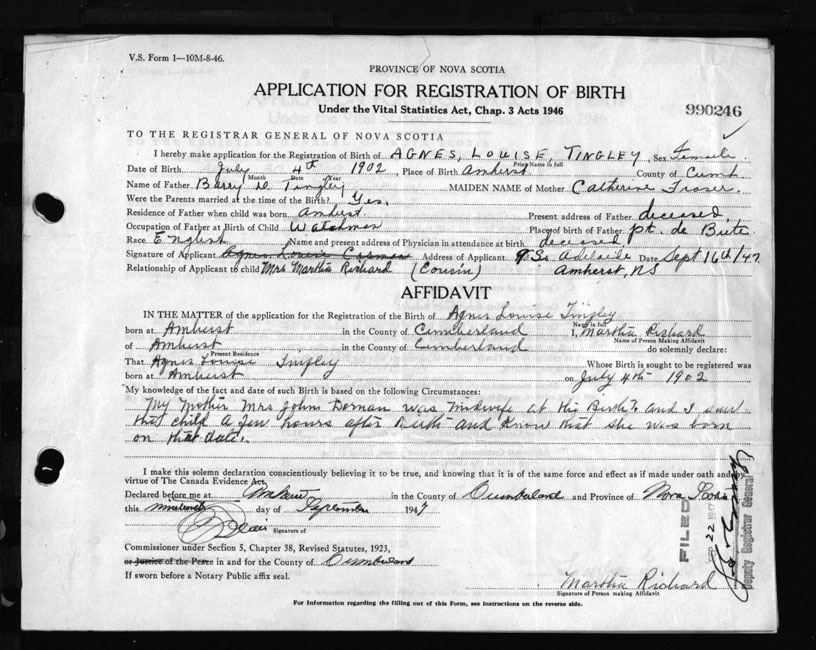 V.S. Form 1—10M-8-46.
PROVINCE OF NOVA SCOTIA
APPLICATION FOR REGISTRATION OF BIRTH
Under the Vital Statistics Act, Chap. 3 Acts 1946
990246
TO THE REGISTRAR GENERAL OF NOVA SCOTIA
I hereby make application for the Registration of Birth of AGNES, LOUISE, TINGLEY, Sex Female.
Print Name in full
Date of Birth July 4th 1902, Place of Birth Amherst County of Cumb.
Month Date Year
Name of Father Barry D. Tingley MAIDEN NAME of Mother Catherine Fraser.
Were the Parents married at the time of the Birth? Yes.
Residence of Father when child was born Amherst. Present address of Father deceased,
Occupation of Father at Birth of Child Watchman Place of birth of Father pt. de Bute
Race English Name and present address of Physician in attendance at birth deceased
Signature of Applicant Agnes Louise Address of Applicant Adelaide Date Sept 16th/47
Relationship of Applicant to child Mrs Martha Richard (Cousin) Amherst, NS
AFFIDAVIT
IN THE MATTER of the application for the Registration of the Birth of Agnes Louise Tingley
Name in full
born at Amherst in the County of Cumberland I, Martha Richard
Name of Person Making Affidavit
of Amherst in the County of Cumberland do solemnly declare:
Present Residence
That Agnes Louise Tingley Whose Birth is sought to be registered was
born at Amherst on July 4th 1902
My knowledge of the fact and date of such Birth is based on the following Circumstances:
My Mother Mrs John Dornan was midwife at this Birth and I saw
this child a few hours after birth and know that she was born
on that date.
I make this solemn declaration conscientiously believing it to be true, and knowing that it is of the same force and effect as if made under oath and by
virtue of The Canada Evidence Act.
Declared before me at Amherst in the County of Cumberland and Province of Nova Scotia
this nineteenth day of September 1947
Blair
Signature of
Commissioner under Section 5, Chapter 38, Revised Statutes, 1923,
or Justice of the Peace in and for the County of Cumberland
If sworn before a Notary Public affix seal.
Martha Richard
Signature of Person making Affidavit
For Information regarding the filling out of this Form, see instructions on the reverse side.
FILED
22 1947
Deputy Registrar General